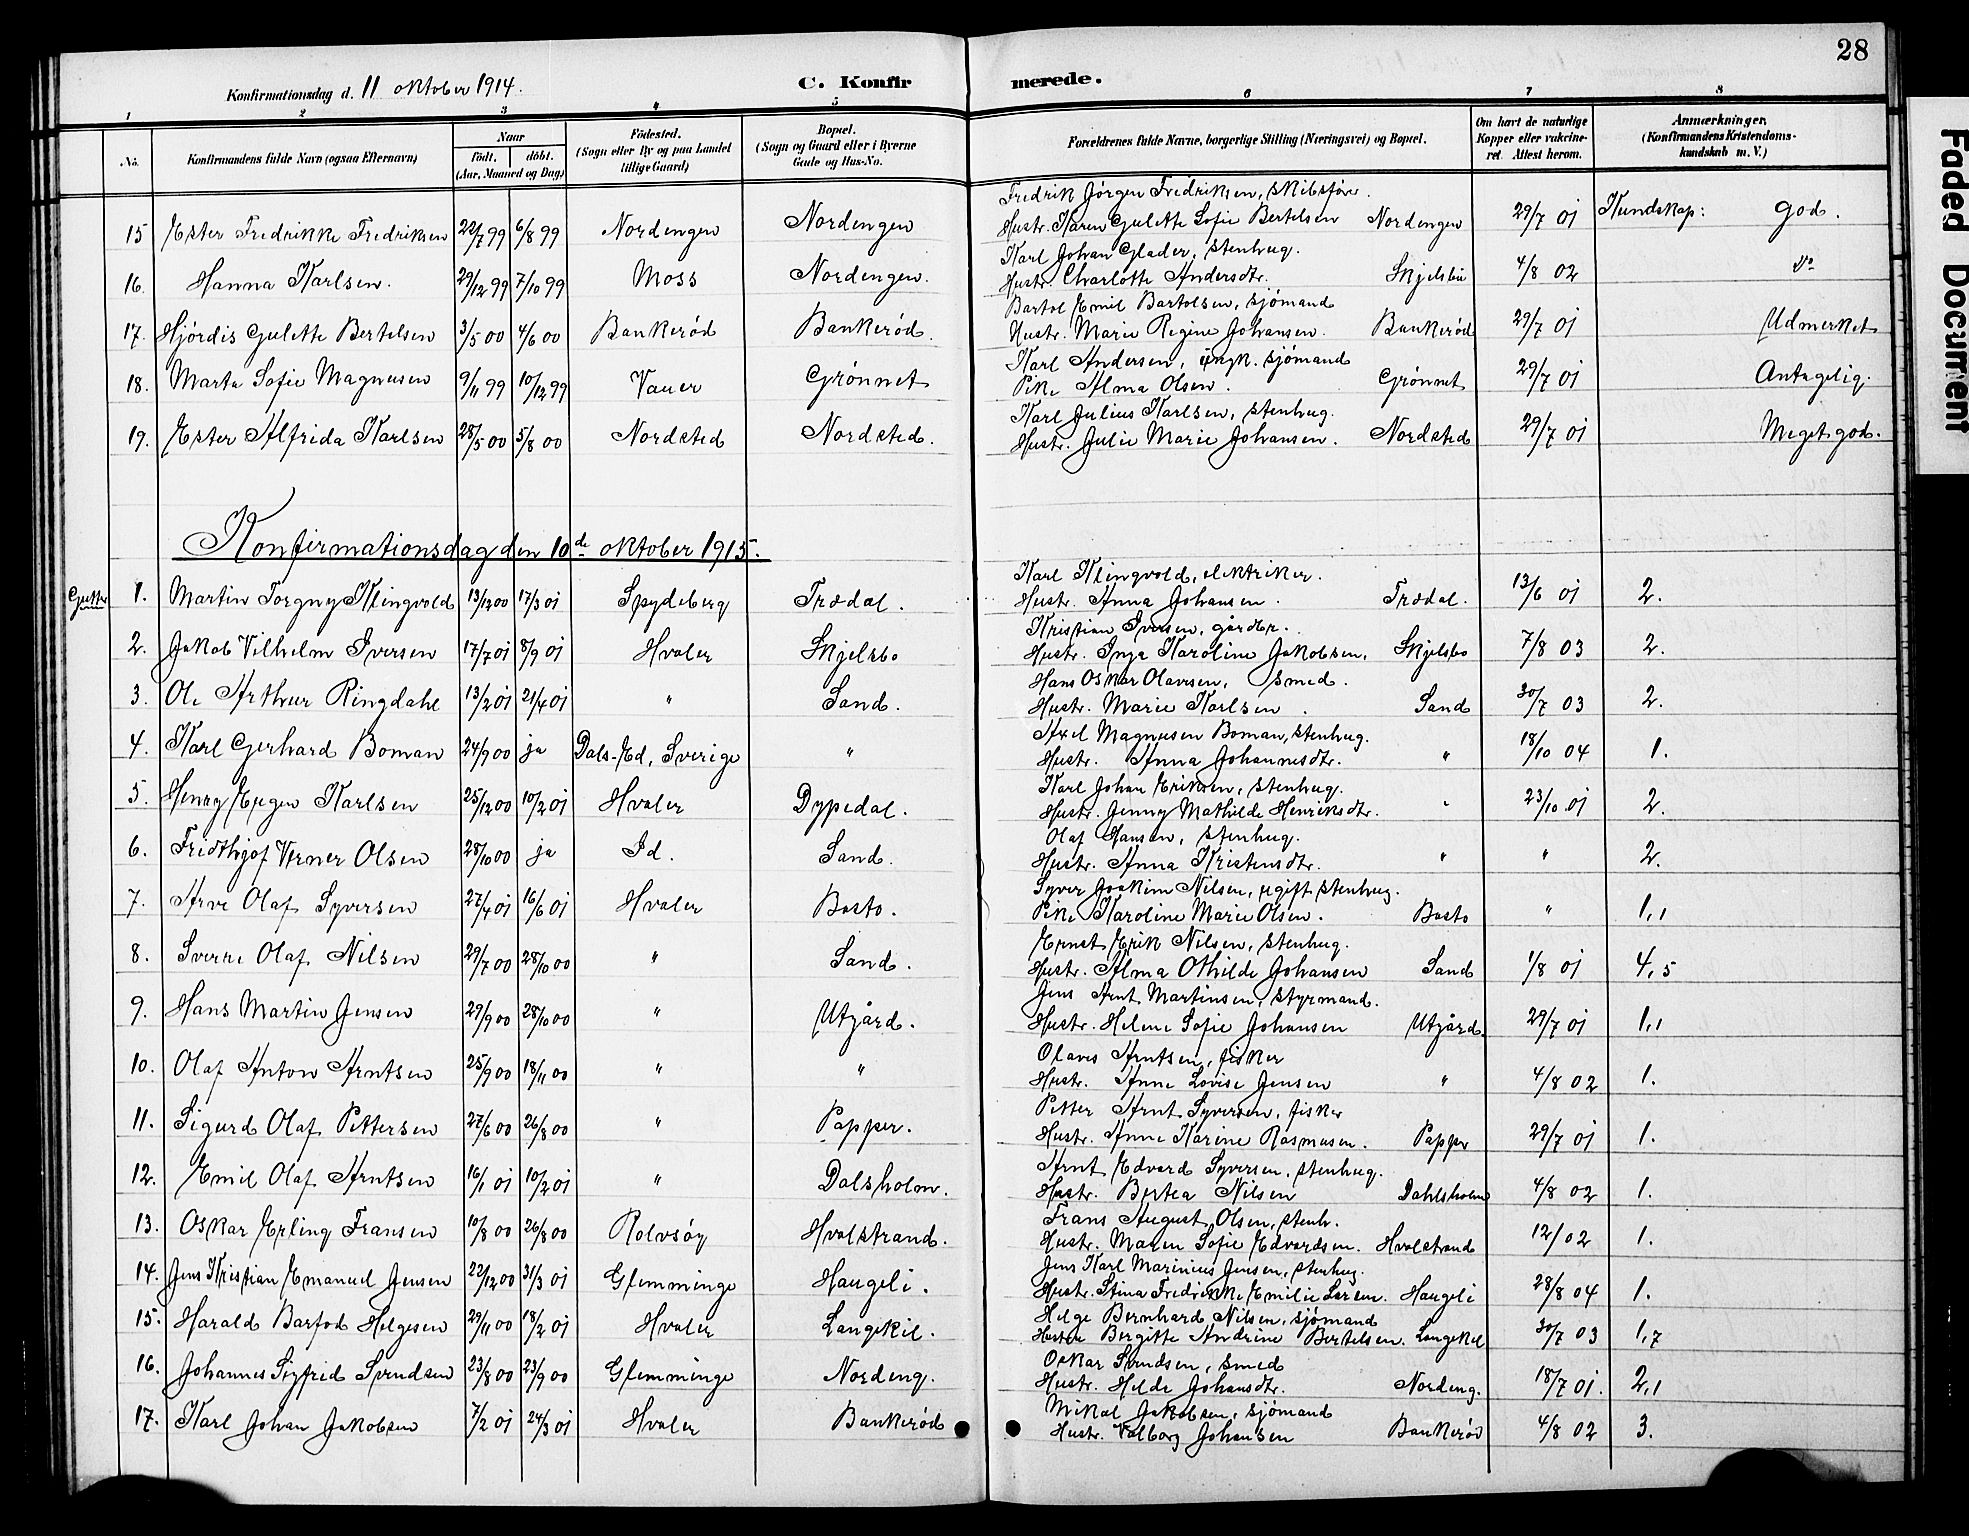 28
Konfirmationsdag d. 11 oktober 1914.
C. Konfirmerede.
1 2 3 4 5 6 7 8
No. Konfirmandens fulde Navn (ogsaa Efternavn) Naar født. døbt. (Aar, Maaned og Dag) Födested. (Sogn eller By og paa Landet tillige Gaard) Bopæl. (Sogn og Gaard eller i Byerne Gade og Hus-No. Forældrenes fulde Navne, borgerlige Stilling (Næringsvei) og Bopæl. Om havt de naturlige Kopper eller vakcineret. Attest herom. Anmærkninger. (Konfirmandens Kristendomskundskab m. V.)
Fredrik Jørgen Fredriksen, skibsfører.
15 Ester Fredrikke Fredriksen 22/7 99 6/8 99 Nordengen Nordengen Hustr. Karen Gulette Sofie Bertelsen Nordengen 29/7 01 Kundskap: god.
Karl Johan Glader, stenhug.
16. Hanna Karlsen. 29/12 99 7/10 99 Moss Nordengen. Hustr. Charlotte Andersdtr. Skjelsbu 4/8 02 do
Bartol Emil Bartolsen, sjömand
17. Hjördis Gulette Bertelsen 3/5 00 4/6 00 Bankeröd Bankeröd. Hustr. Marie Regine Johansen. Bankeröd 29/7 01 Udmerket
Karl Andersen, ungk. sjömand
18. Marta Sofie Magnusen 9/11 99 10/12 99 Vauer Grönnet Pike Alma Olsen. Grönnet 29/7 01 Antagelig.
Karl Julius Karlsen, stenhug.
19. Ester Alfrida Karlsen 28/5 00 5/8 00 Nordsted Nordsted. Hustr. Julie Marie Johansen. Nordsted 29/7 01 Meget god.
Konfirmationsdag den 10de oktober 1915.
Karl Klingvold, elektriker.
Gutter 1. Martin Torgny Klingvold 13/12 00 17/3 01 Spydeberg Trædal. Hustr. Anna Johansen. Trædal. 13/6 01 2.
Kristian Iversen, gårdbr.
2. Jakob Vilhelm Iversen 17/7 01 8/9 01 Hvaler Skjelsbo Hustr. Inga Karoline Jakobsen. Skjelsbo 7/8 03 2.
Hans Oskar Olavesen, smed.
3. Ole Arthur Ringdahl 13/2 01 21/4 01 " Sand. Hustr. Marie Karlsen. Sand 30/7 03 2.
Axel Magnusen Boman, stenhug.
4. Karl Gerhard Boman 24/9 00 ja Dals-Ed, Sverige " Hustr. Anna Johannesdtr. " 18/10 04 1.
Karl Johan Eriksen, stenhug.
5. Henry Eugen Karlsen 25/12 00 10/2 01 Hvaler Dypedal. Hustr. Jenny Mathilde Henriksdtr. " 23/10 01 2.
Olaf Hansen, stenhug.
6. Fridthjof Verner Olsen 28/10 00 ja Id. Sand. Hustr. Anna Kristensdtr. " " 2.
Syver Joakim Nilsen, ugift stenhug.
7. Arve Olaf Syversen 27/4 01 16/6 01 Hvaler Basto. Pike Karoline Marie Olsen. Basto " 1,1
Ernst Erik Nilsen, stenhug.
8. Sverre Olaf Nilsen 29/7 00 28/10 00 " Sand. Hustr. Alma Othilde Johansen Sand 1/8 01 4,5
Jens Arnt Martinsen, styrmand.
9. Hans Martin Jensen 29/9 00 28/10 00 " Utgård. Hustr. Helene Sofie Johansen Utgård. 29/7 01 1,1
Olaves Arntsen, fisker
10. Olaf Anton Arntsen 25/9 00 18/11 00 " " Hustr. Anne Lovise Jensen " 4/8 02 1.
Petter Arnt Syversen, fisker
11. Sigurd Olaf Pettersen 27/6 00 26/8 00 " Papper. Hustr. Anne Karine Rasmusen. Papper 29/7 01 1.
Arnt Edvard Syversen, stenhug.
12. Emil Olaf Arntsen 16/1 01 10/2 01 " Dalsholm. Hustr. Bertea Nilsen Dahlsholm 4/8 02 1.
Frans August Olsen, stenh.
13. Oskar Erling Fransen 10/8 00 26/8 00 Rolvsøy Hvalstrand. Hustr. Maren Sofie Edvardsen. Hvalstrand 12/02 1.
Jens Karl Marinius Jensen, stenhug.
14. Jens Kristian Emanuel Jensen 22/12 00 31/3 01 Glemminge Haugeli. Hustr. Stina Fredrikke Emilie Larsen. Haugeli 28/8 04 1.
Helge Bernhard Nilsen, sjömand
15. Harald Barfod Helgesen 29/11 00 18/2 01 Hvaler Langekil. Hustru Bergitte Andrine Bertelsen. Langekil 30/7 03 1,7
Oskar Svendsen, smed
16. Johannes Sigfrid Svendsen 23/8 00 23/9 00 Glemminge Nordeng. Hustr. Hilda Johansdtr. Nordeng. 18/7 01. 2,1
Mikal Jakobsen, sjömand
17. Karl Johan Jakobsen 7/2 01 24/3 01 Hvaler Bankeröd Hustr. Valborg Johansen Bankeröd 4/8 02 3.
Faded Document